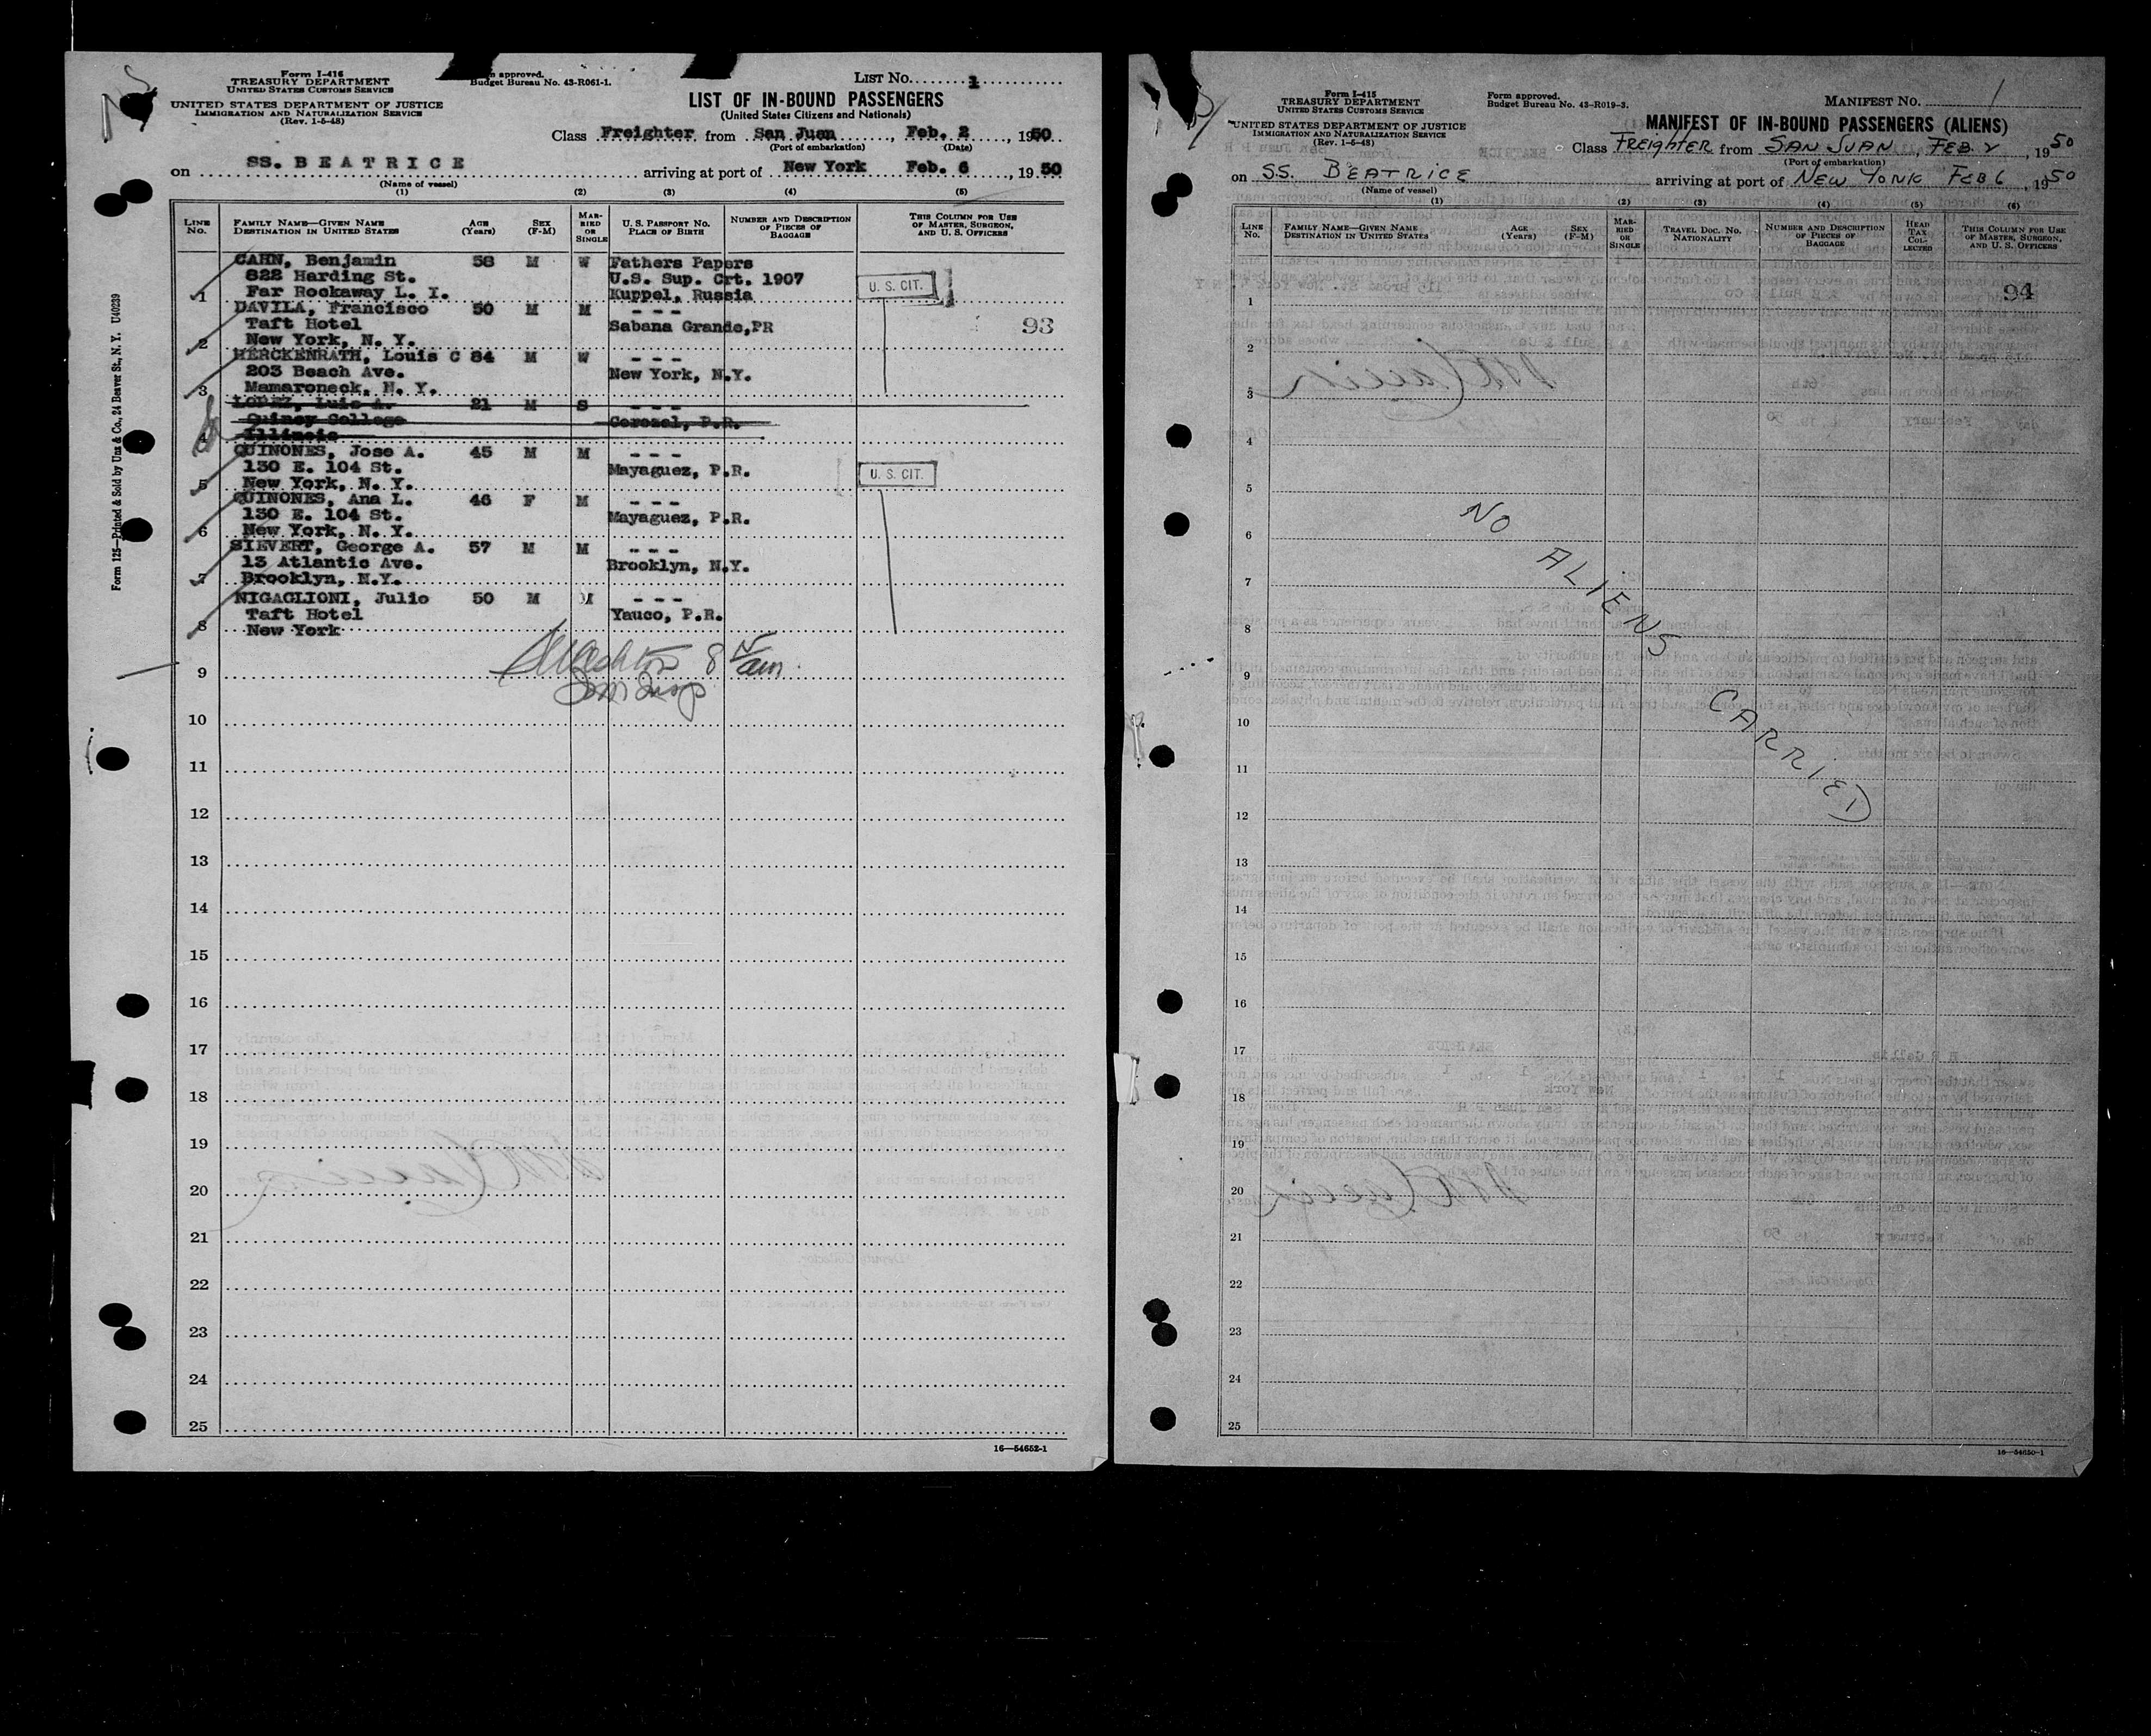 Form I-416
TREASURY DEPARTMENT
UNITED STATES CUSTOMS SERVICE
UNITED STATES DEPARTMENT OF JUSTICE
IMMIGRATION AND NATURALIZATION SERVICE
(Rev. 1-5-48)
approved.
Budget Bureau No. 43-R061-1.
LIST No. 1
LIST OF IN-BOUND PASSENGERS
(United States Citizens and Nationals)
Class Freighter from San Juan, Feb. 2, 1950
(Port of embarkation) (Date)
on SS. BEATRICE arriving at port of New York Feb. 6, 1950
(Name of vessel)
(1) (2) (3) (4) (5)
LINE No. FAMILY NAME—GIVEN NAME DESTINATION IN UNITED STATES AGE (Years) SEX (F-M) MARRIED OR SINGLE U. S. PASSPORT NO. PLACE OF BIRTH NUMBER AND DESCRIPTION OF PIECES OF BAGGAGE THIS COLUMN FOR USE OF MASTER, SURGEON, AND U. S. OFFICERS
CAHN, Benjamin 58 M W Fathers Papers
822 Harding St. U.S. Sup. Crt. 1907
1 Far Rockaway L. I. Kuppel, Russia U. S. CIT.
DAVILA, Francisco 50 M M - - -
Taft Hotel Sabana Grande,PR 93
2 New York, N. Y.
HERCKENRATH, Louis C 84 M W - - -
203 Beach Ave. New York, N.Y.
3 Mamaroneck, N. Y.
LOPEZ, Luis A. 21 M S - - -
Quincy College Corozal, P.R.
4 Illinois
QUINONES, Jose A. 45 M M - - -
130 E. 104 St. Mayaguez, P.R. U. S. CIT.
5 New York, N. Y.
QUINONES, Ana L. 46 F M - - -
130 E. 104 St. Mayaguez, P.R.
6 New York, N. Y.
SIEVERT, George A. 57 M M - - -
13 Atlantic Ave. Brooklyn, N.Y.
7 Brooklyn, N.Y.
NIGAGLIONI, Julio 50 M M - - -
Taft Hotel Yauco, P.R.
8 New York
9
10
11
12
13
14
15
16
17
18
19
20
21
22
23
24
25
16—54652-1
Form 125—Printed & Sold by Unz & Co., 24 Beaver St., N. Y. U40239
Form I-415
TREASURY DEPARTMENT
UNITED STATES CUSTOMS SERVICE
UNITED STATES DEPARTMENT OF JUSTICE
IMMIGRATION AND NATURALIZATION SERVICE
(Rev. 1-5-48)
Form approved.
Budget Bureau No. 43-R019-3.
MANIFEST No. 1
MANIFEST OF IN-BOUND PASSENGERS (ALIENS)
Class FREIGHTER from SAN JUAN, FEB 2, 1950
(Port of embarkation)
on SS. BEATRICE arriving at port of NEW YORK FEB 6, 1950
(Name of vessel)
(1) (2) (3) (4) (5) (6)
LINE No. FAMILY NAME—GIVEN NAME DESTINATION IN UNITED STATES AGE (Years) SEX (F-M) MARRIED OR SINGLE TRAVEL DOC. NO. NATIONALITY NUMBER AND DESCRIPTION OF PIECES OF BAGGAGE HEAD TAX COLLECTED THIS COLUMN FOR USE OF MASTER, SURGEON, AND U. S. OFFICERS
1 94
2
3
4
5
NO ALIENS CARRIED
6
7
8
9
10
11
12
13
14
15
16
17
18
19
20
21
22
23
24
25
16—54650-1